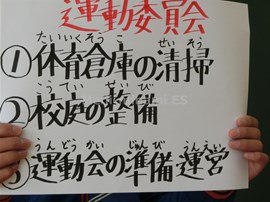 運動委員会
たいいくそうこ せいそう
①体育倉庫の清掃
こうてい せいび
②校庭の整備
うんどうかい じゅんび うんえい
③運動会の準備運営